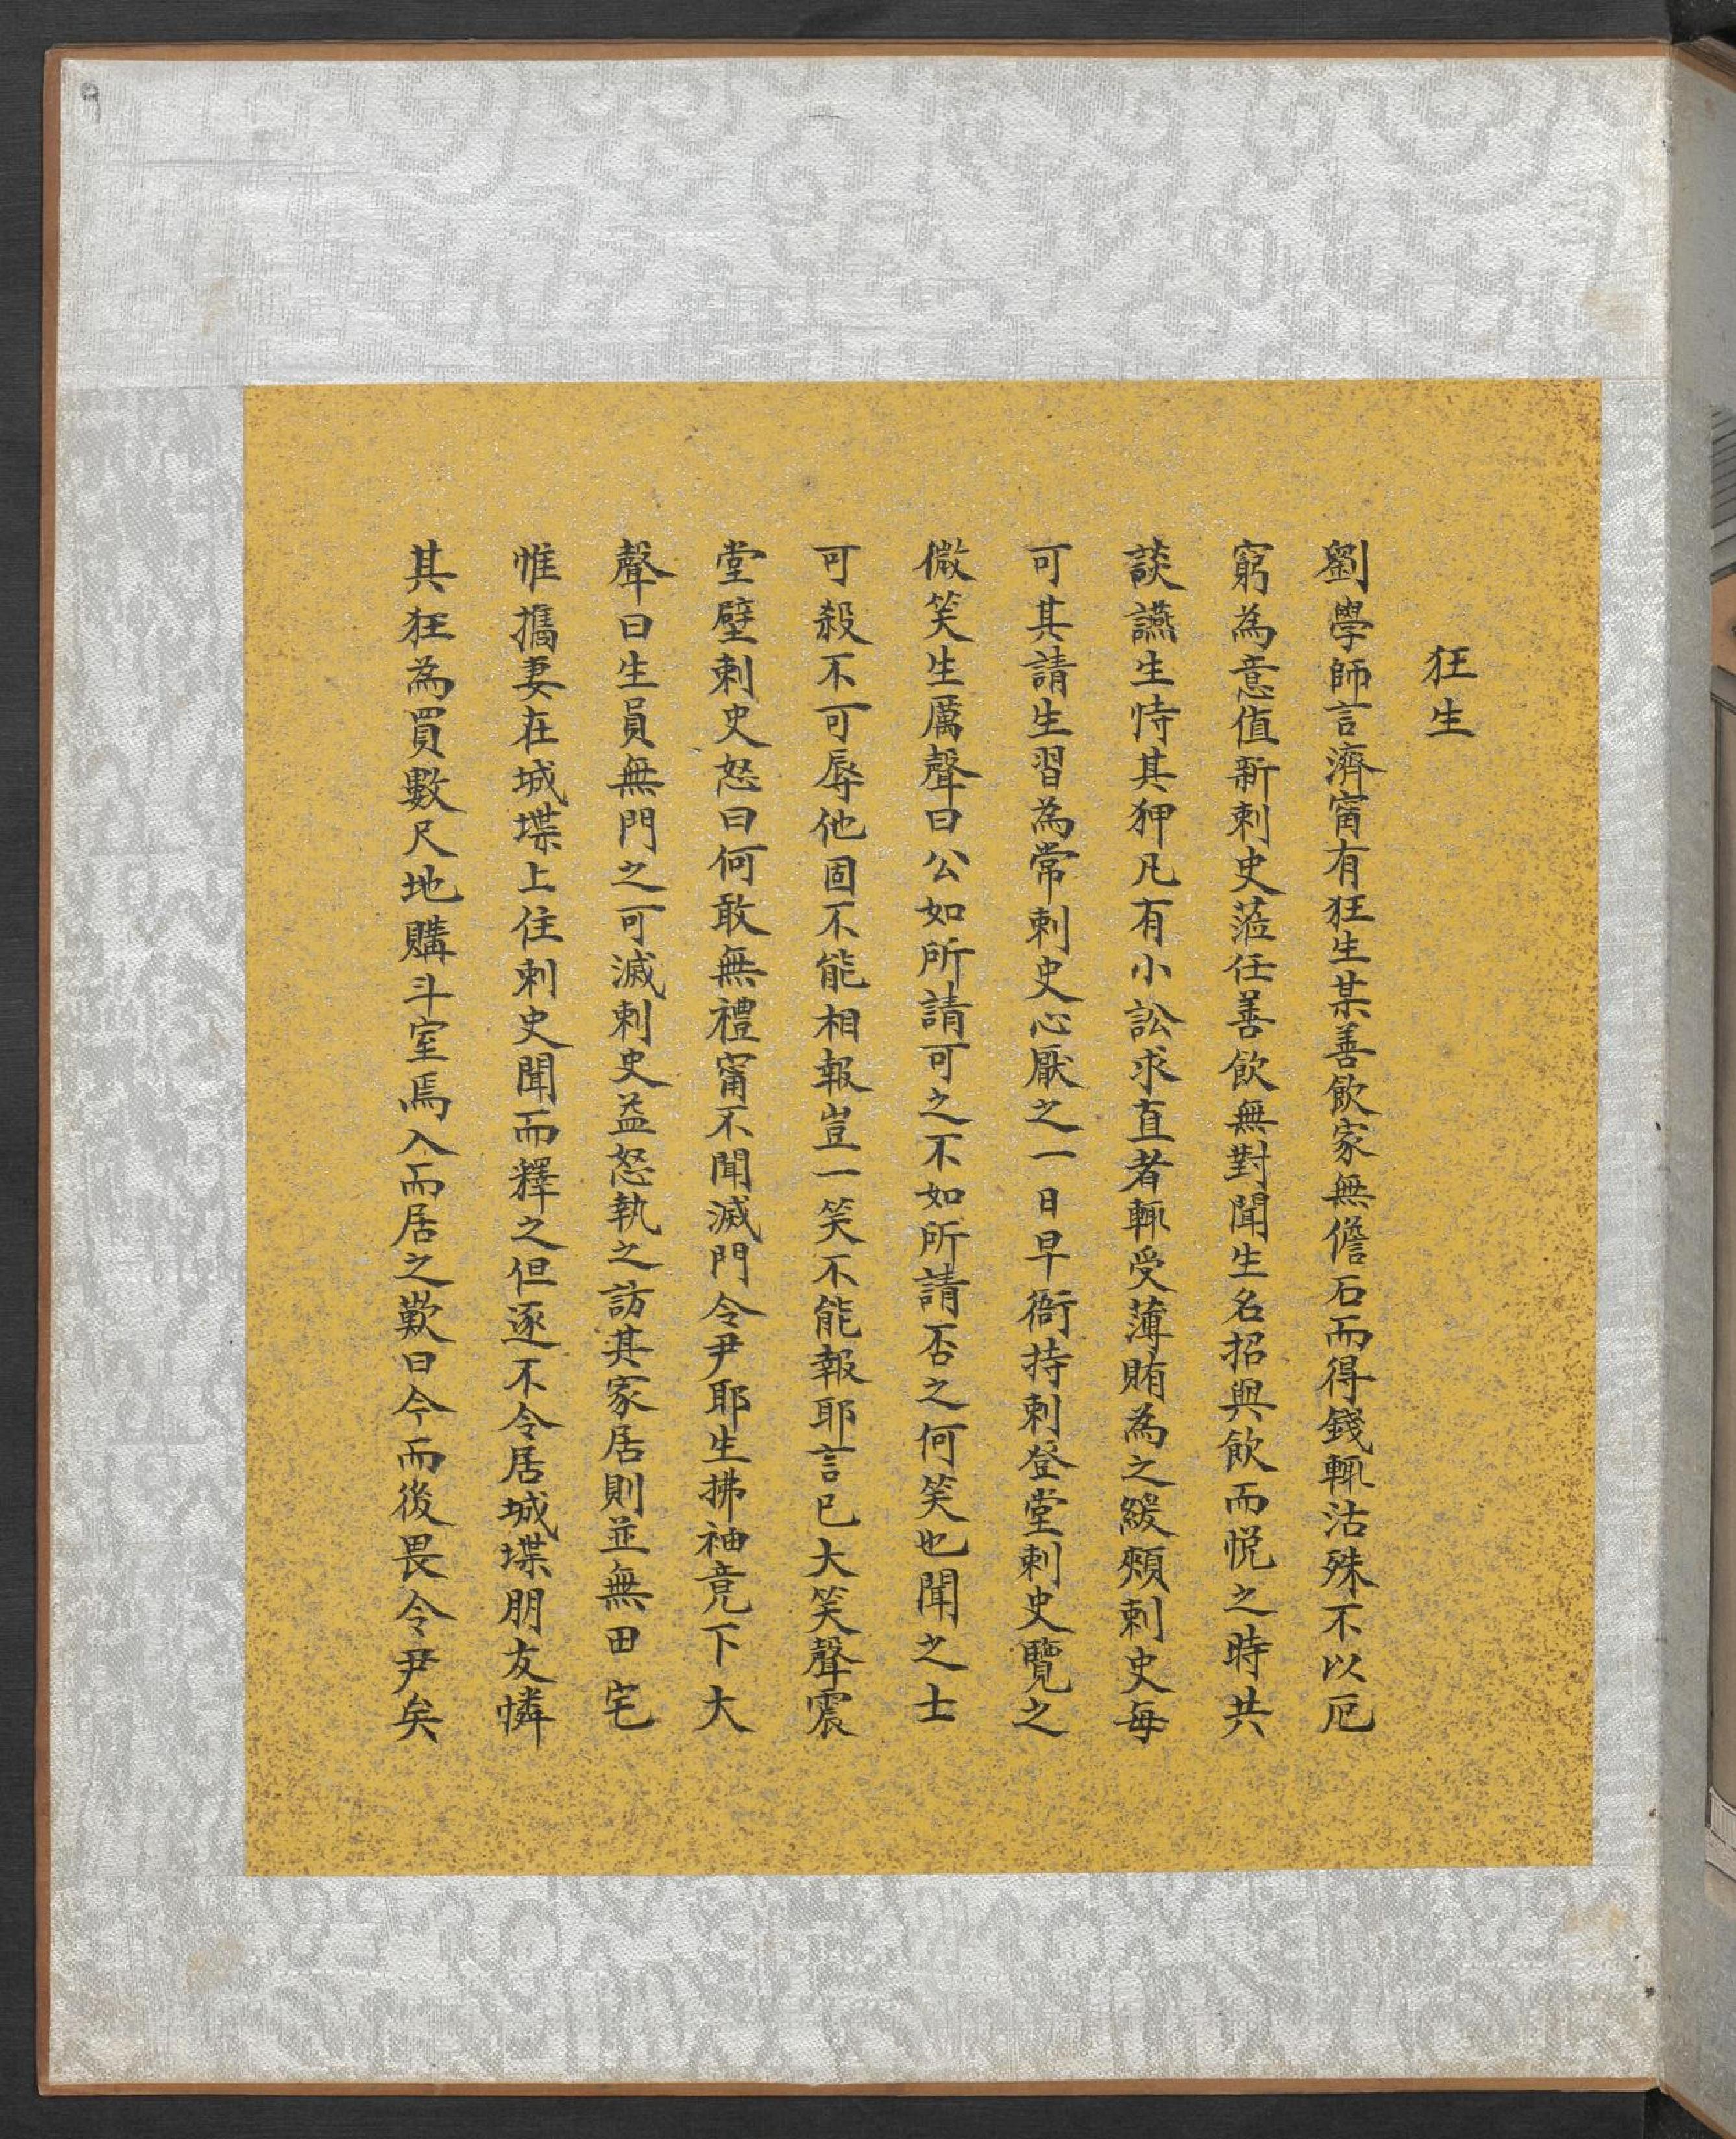 9
狂生
劉學師言濟甯有狂生某善飲家無儋石而得錢輒沽殊不以厄
窮為意值新刺史蒞任善飲無對聞生名招與飲而悅之時共
談讌生恃其狎凡有小訟求直者輒受薄賄為之緩頰刺史每
可其請生習為常刺史心厭之一日早衙持刺登堂刺史覽之
微笑生厲聲曰公如所請可之不如所請否之何笑也聞之士
可殺不可辱他固不能相報豈一笑不能報耶言已大笑聲震
堂壁刺史怒曰何敢無禮甯不聞滅門令尹耶生拂袖竟下大
聲曰生員無門之可滅刺史益怒執之訪其家居則並無田宅
惟攜妻在城堞上住刺史聞而釋之但逐不令居城堞朋友憐
其狂為買數尺地購斗室焉入而居之歎曰今而後畏令尹矣